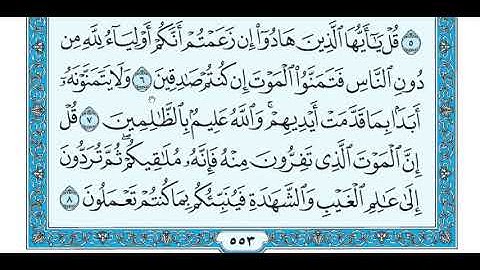 ٥ قُلْ يَٰٓأَيُّهَا ٱلَّذِينَ هَادُوٓا۟ إِن زَعَمْتُمْ أَنَّكُمْ أَوْلِيَآءُ لِلَّهِ مِن
دُونِ ٱلنَّاسِ فَتَمَنَّوُا۟ ٱلْمَوْتَ إِن كُنتُمْ صَٰدِقِينَ ٦ وَلَا يَتَمَنَّوْنَهُۥٓ
أَبَدًۢا بِمَا قَدَّمَتْ أَيْدِيهِمْ ۚ وَٱللَّهُ عَلِيمٌۢ بِٱلظَّٰلِمِينَ ٧ قُلْ
إِنَّ ٱلْمَوْتَ ٱلَّذِى تَفِرُّونَ مِنْهُ فَإِنَّهُۥ مُلَٰقِيكُمْ ۖ ثُمَّ تُرَدُّونَ
إِلَىٰ عَٰلِمِ ٱلْغَيْبِ وَٱلشَّهَٰدَةِ فَيُنَبِّئُكُم بِمَا كُنتُمْ تَعْمَلُونَ ٨
٥٥٣